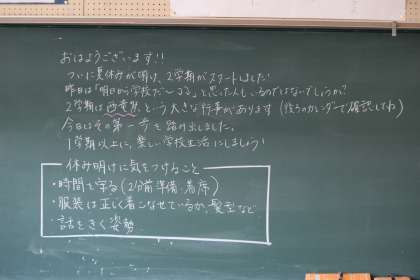 おはようございます!!
ついに夏休みが明け、2学期がスタートしました!
昨日は「明日から学校だ〜
」と思った人もいるのではないでしょうか?
2学期は
という大きな行事があります(後ろのカレンダーで確認してね)
今日はその第一歩を踏み出しました。
1学期以上に、楽しい学校生活にしましょう!
休み明けに気をつけること
・時間を守る(2分前準備・着席)
・服装は正しく着こなせているか、髪型など
・話をきく姿勢